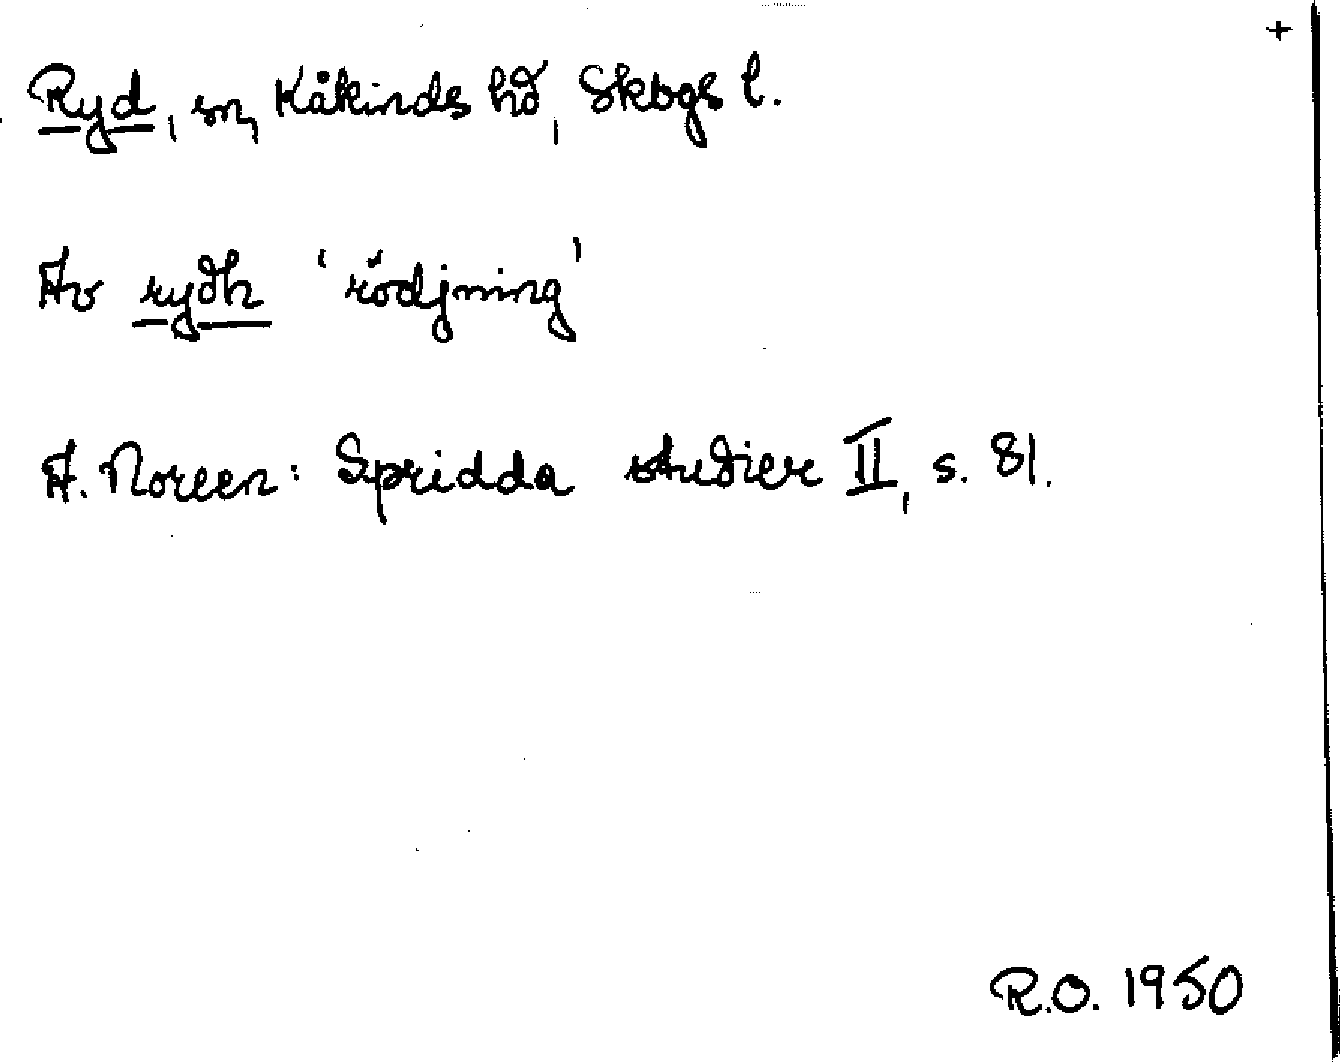 +
Ryd, sn, Kåkinds hd, Skbgs l.
Av rydh 'rödjning'
A. Noreen: Spridda studier II, s. 81.
R.O. 1950